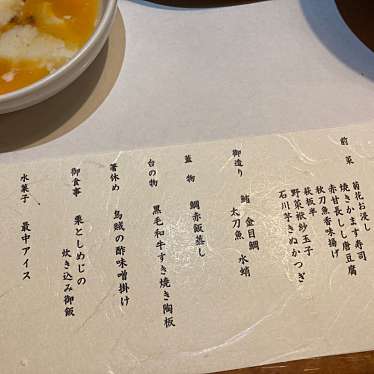 前菜
菊花お浸し
焼きかます寿司
赤甘長しし唐豆腐
秋刀魚香味揚げ
萩板半
野菜袱紗玉子
石川芋きぬかつぎ
御造り
鮪 金目鯛
太刀魚 水蛸
蓋物 鯛赤飯蒸し
台の物 黒毛和牛すき焼き陶板
箸休め 烏賊の酢味噌掛け
御食事 栗としめじの
炊き込み御飯
水菓子 最中アイス